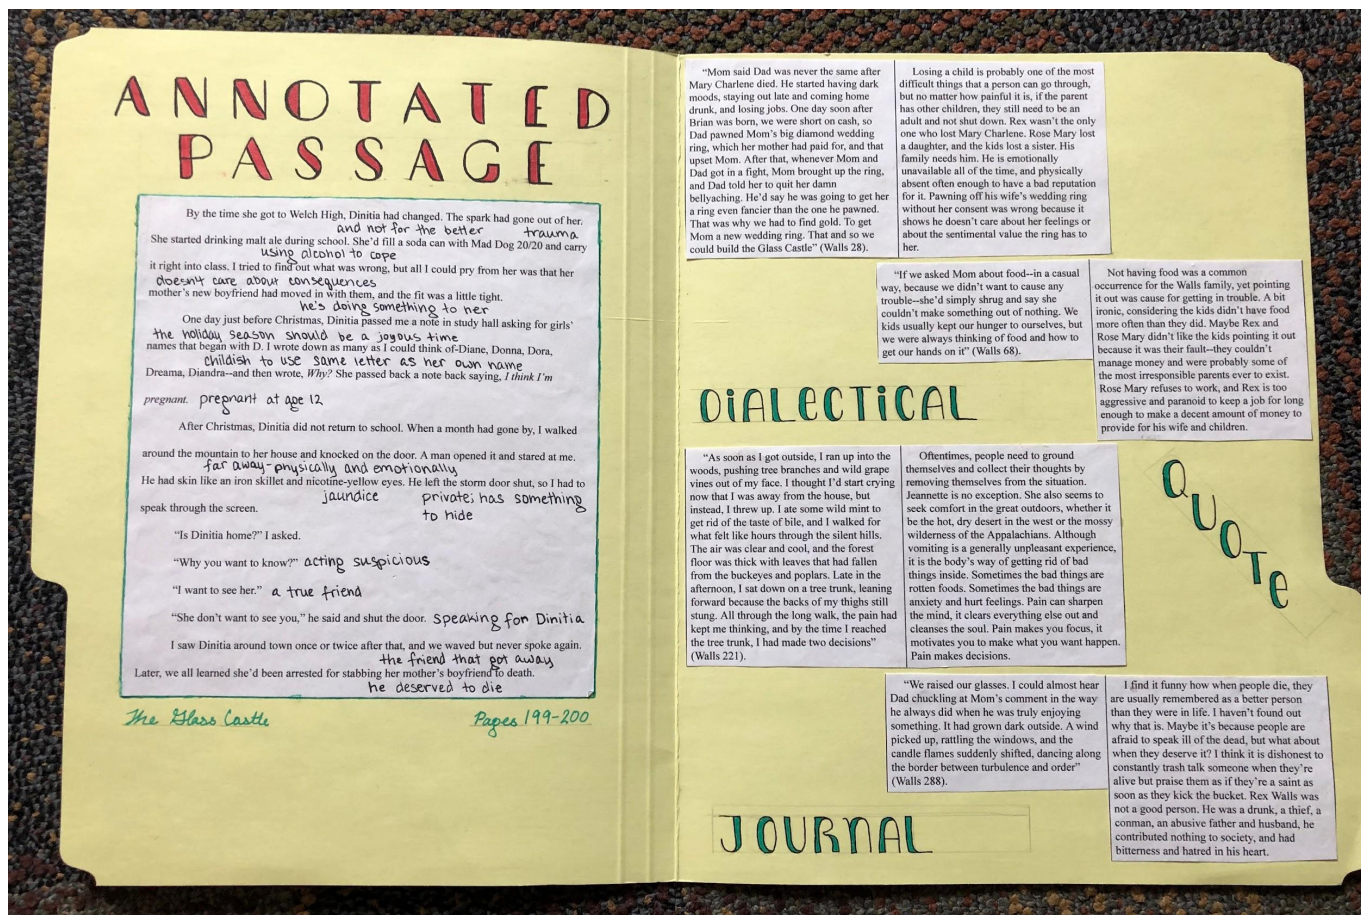 ANNOTATED
PASSAGE
By the time she got to Welch High, Dinitia had changed. The spark had gone out of her.
and not for the better trauma
She started drinking malt ale during school. She'd fill a soda can with Mad Dog 20/20 and carry
using alcohol to cope
it right into class. I tried to find out what was wrong, but all I could pry from her was that her
doesn't care about consequences
mother's new boyfriend had moved in with them, and the fit was a little tight.
he's doing something to her
One day just before Christmas, Dinitia passed me a note in study hall asking for girls'
the holiday season should be a joyous time
names that began with D. I wrote down as many as I could think of-Diane, Donna, Dora,
childish to use same letter as her own name
Dreama, Diandra--and then wrote, Why? She passed back a note back saying, I think I'm
pregnant. pregnant at age 12
After Christmas, Dinitia did not return to school. When a month had gone by, I walked
around the mountain to her house and knocked on the door. A man opened it and stared at me.
far away-physically and emotionally
He had skin like an iron skillet and nicotine-yellow eyes. He left the storm door shut, so I had to
jaundice private; has something
speak through the screen.
to hide
"Is Dinitia home?" I asked.
"Why you want to know?" acting suspicious
"I want to see her." a true friend
"She don't want to see you," he said and shut the door. speaking for Dinitia
I saw Dinitia around town once or twice after that, and we waved but never spoke again.
the friend that got away
Later, we all learned she'd been arrested for stabbing her mother's boyfriend to death.
he deserved to die
The Glass Castle Pages 199-200
"Mom said Dad was never the same after
Mary Charlene died. He started having dark
moods, staying out late and coming home
drunk, and losing jobs. One day soon after
Brian was born, we were short on cash, so
Dad pawned Mom's big diamond wedding
ring, which her mother had paid for, and that
upset Mom. After that, whenever Mom and
Dad got in a fight, Mom brought up the ring,
and Dad told her to quit her damn
bellyaching. He'd say he was going to get her
a ring even fancier than the one he pawned.
That was why we had to find gold. To get
Mom a new wedding ring. That and so we
could build the Glass Castle" (Walls 28).
Losing a child is probably one of the most
difficult things that a person can go through,
but no matter how painful it is, if the parent
has other children, they still need to be an
adult and not shut down. Rex wasn't the only
one who lost Mary Charlene. Rose Mary lost
a daughter, and the kids lost a sister. His
family needs him. He is emotionally
unavailable all of the time, and physically
absent often enough to have a bad reputation
for it. Pawning off his wife's wedding ring
without her consent was wrong because it
shows he doesn't care about her feelings or
about the sentimental value the ring has to
her.
"If we asked Mom about food--in a casual
way, because we didn't want to cause any
trouble--she'd simply shrug and say she
couldn't make something out of nothing. We
kids usually kept our hunger to ourselves, but
we were always thinking of food and how to
get our hands on it" (Walls 68).
Not having food was a common
occurrence for the Walls family, yet pointing
it out was cause for getting in trouble. A bit
ironic, considering the kids didn't have food
more often than they did. Maybe Rex and
Rose Mary didn't like the kids pointing it out
because it was their fault--they couldn't
manage money and were probably some of
the most irresponsible parents ever to exist.
Rose Mary refuses to work, and Rex is too
aggressive and paranoid to keep a job for long
enough to make a decent amount of money to
provide for his wife and children.
DiALECTiCAL
QUOTE
"As soon as I got outside, I ran up into the
woods, pushing tree branches and wild grape
vines out of my face. I thought I'd start crying
now that I was away from the house, but
instead, I threw up. I ate some wild mint to
get rid of the taste of bile, and I walked for
what felt like hours through the silent hills.
The air was clear and cool, and the forest
floor was thick with leaves that had fallen
from the buckeyes and poplars. Late in the
afternoon, I sat down on a tree trunk, leaning
forward because the backs of my thighs still
stung. All through the long walk, the pain had
kept me thinking, and by the time I reached
the tree trunk, I had made two decisions"
(Walls 221).
Oftentimes, people need to ground
themselves and collect their thoughts by
removing themselves from the situation.
Jeannette is no exception. She also seems to
seek comfort in the great outdoors, whether it
be the hot, dry desert in the west or the mossy
wilderness of the Appalachians. Although
vomiting is a generally unpleasant experience,
it is the body's way of getting rid of bad
things inside. Sometimes the bad things are
rotten foods. Sometimes the bad things are
anxiety and hurt feelings. Pain can sharpen
the mind, it clears everything else out and
cleanses the soul. Pain makes you focus, it
motivates you to make what you want happen.
Pain makes decisions.
"We raised our glasses. I could almost hear
Dad chuckling at Mom's comment in the way
he always did when he was truly enjoying
something. It had grown dark outside. A wind
picked up, rattling the windows, and the
candle flames suddenly shifted, dancing along
the border between turbulence and order"
(Walls 288).
I find it funny how when people die, they
are usually remembered as a better person
than they were in life. I haven't found out
why that is. Maybe it's because people are
afraid to speak ill of the dead, but what about
when they deserve it? I think it is dishonest to
constantly trash talk someone when they're
alive but praise them as if they're a saint as
soon as they kick the bucket. Rex Walls was
not a good person. He was a drunk, a thief, a
conman, an abusive father and husband, he
contributed nothing to society, and had
bitterness and hatred in his heart.
JOURNAL